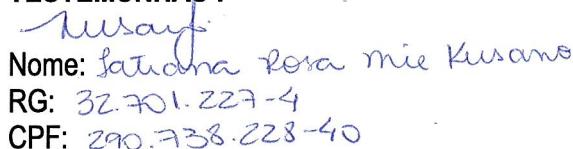 Kusano
Nome: Tatiana Rosa Mie Kusano
RG: 32.701.227-4
CPF: 290.738.228-40